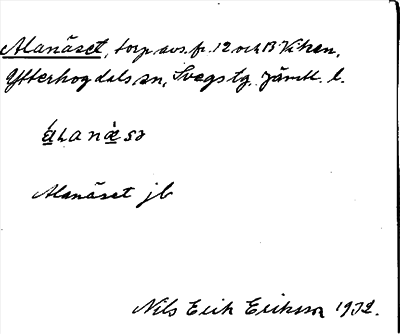 Alanäset, torp avs. fr. 12 och 13 Viken,
Ytterhogdals sn, Svegs tg. Jämtl. l.
a̱lanæ̱sə
Alanäset jb
Nils Erik Eriksson 1932.